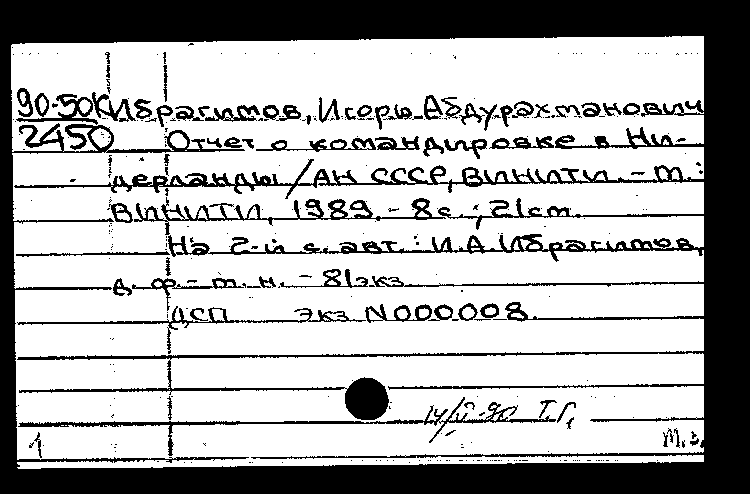 90-50К Ибрагимов, Игорь Абдурахманович
2450 Отчет о командировке в Ни-
дерланды / АН СССР, ВИНИТИ. - М.:
ВИНИТИ, 1989. - 8с.; 21см.
На 2-й с. авт.: И.А.Ибрагимов,
д. ф.-м. н. - 81экз.
ДСП Экз N000008.
90 Т.Г,
1 м.з.